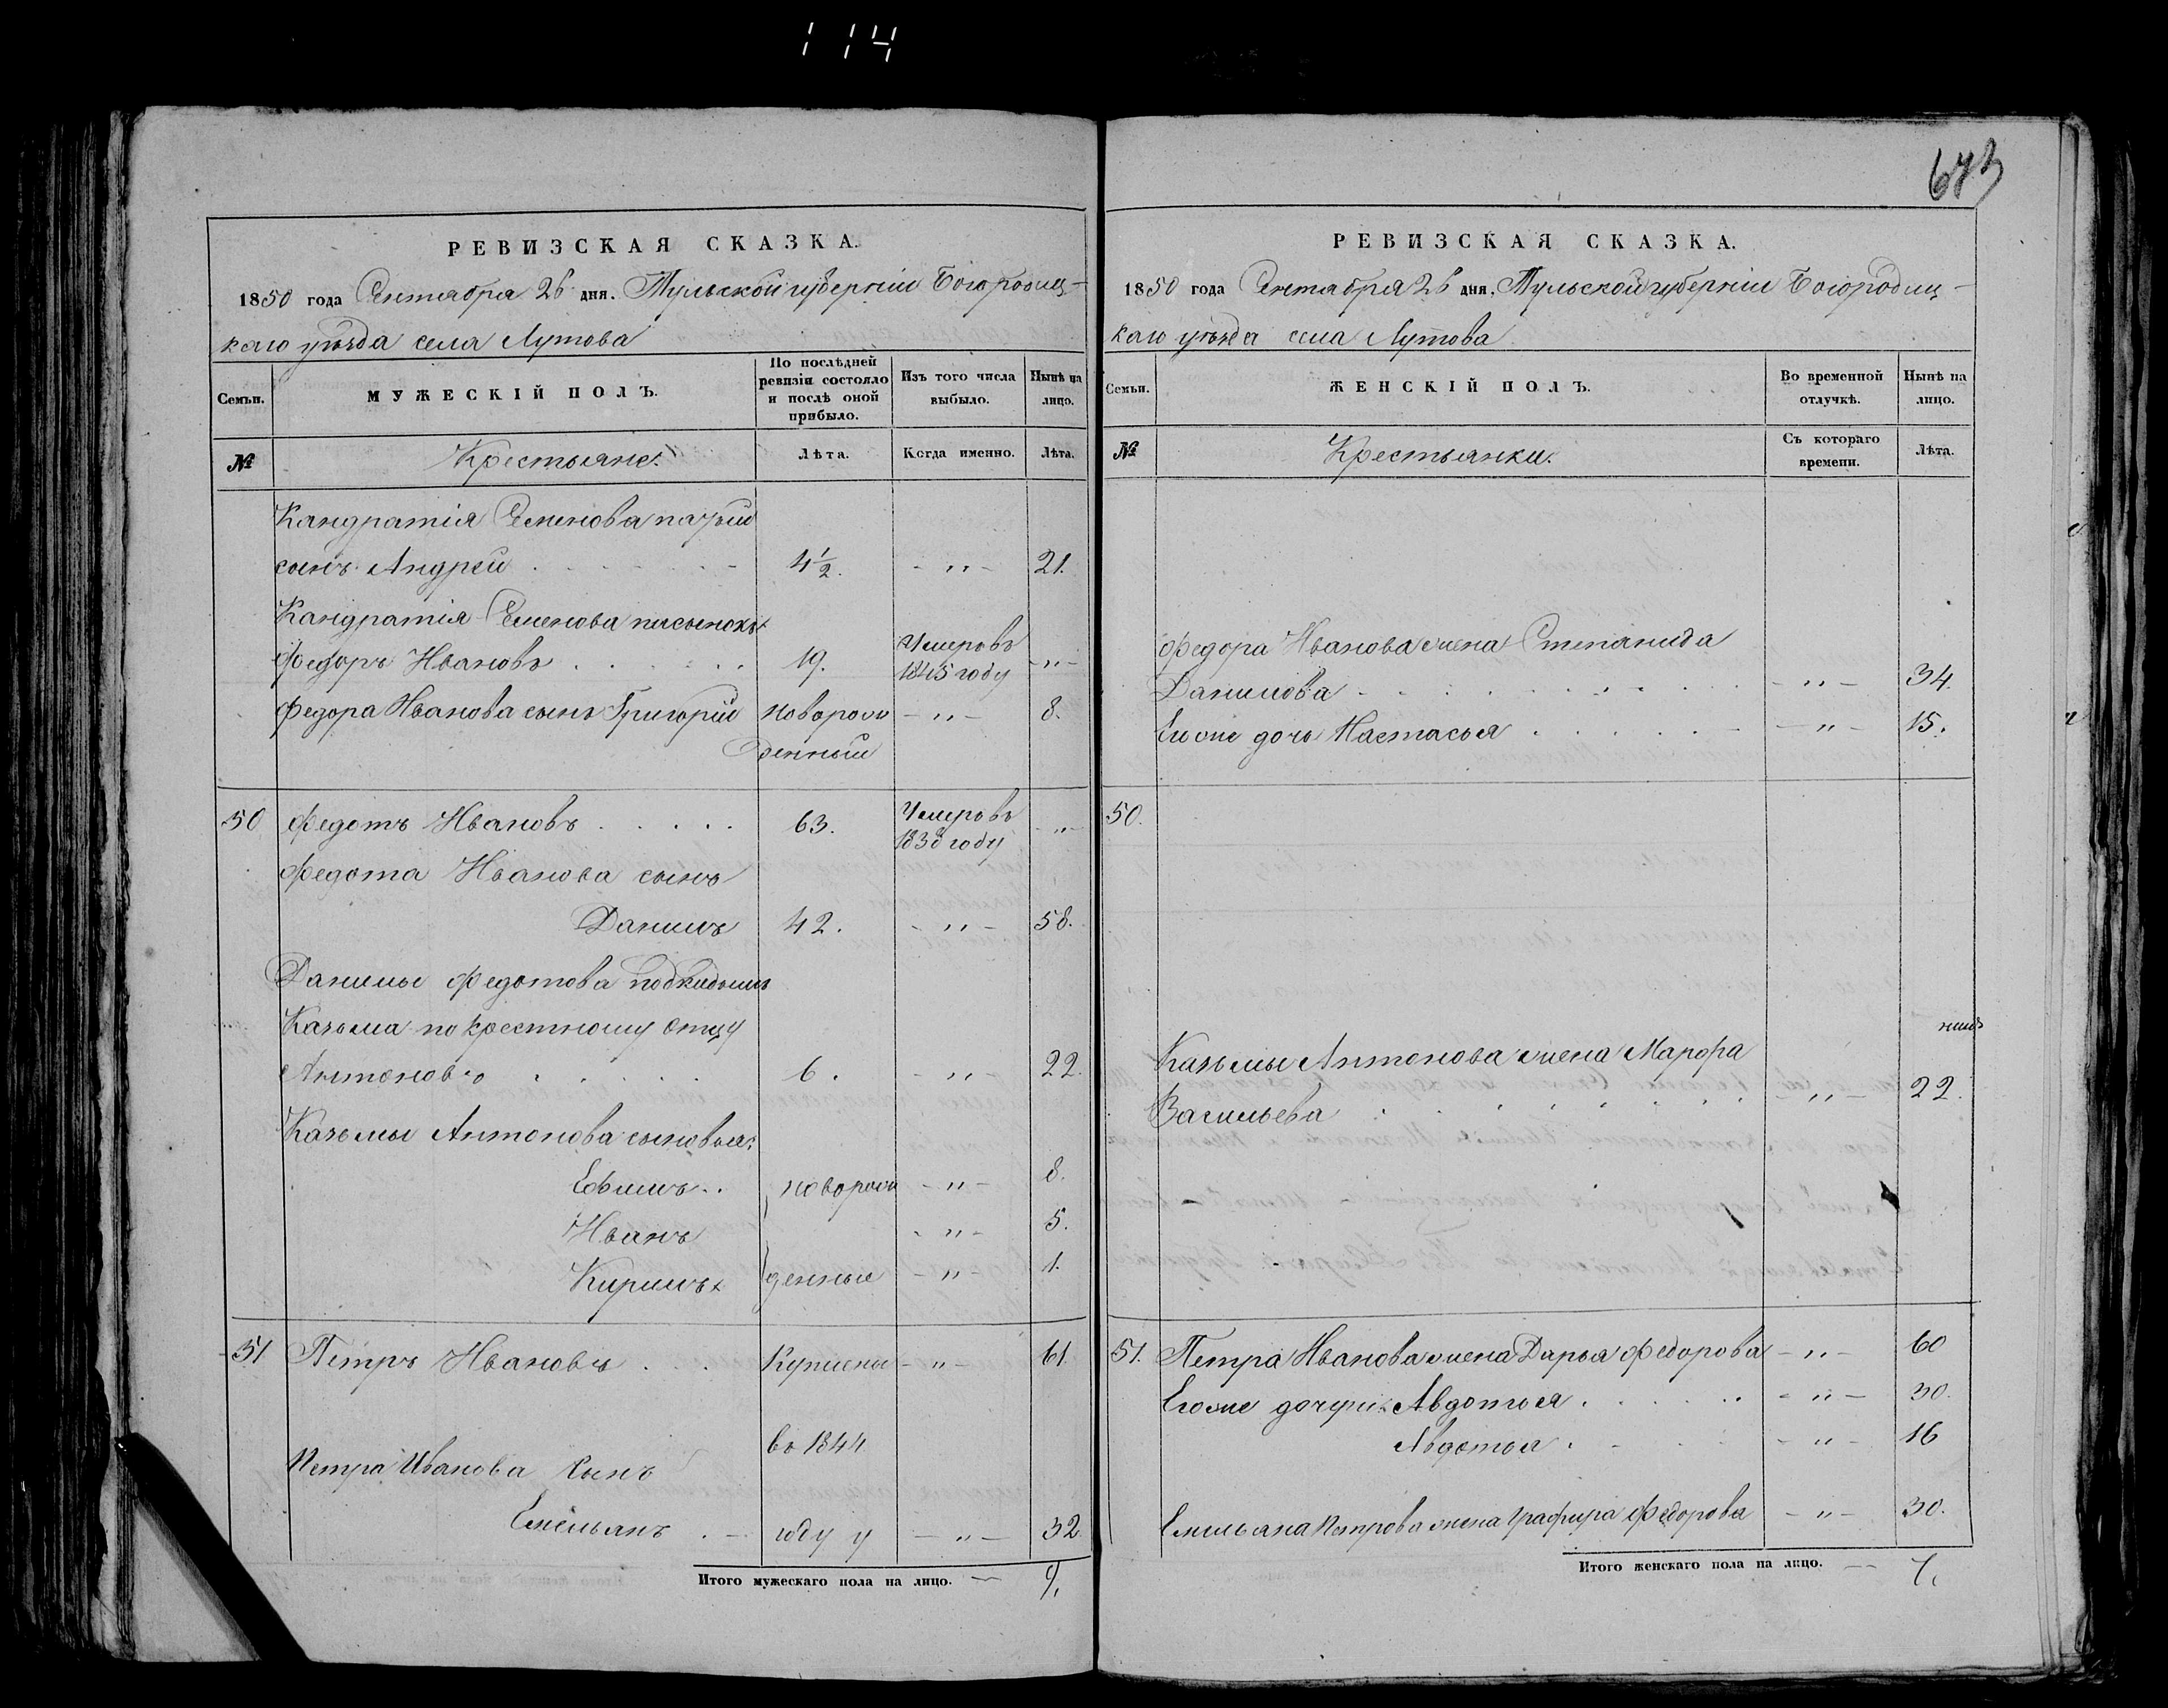 114
673
РЕВИЗСКАЯ СКАЗКА.
1850 года Сентября 26 дня. Тульской губерніи Богородиц-
каго уѣзда села Лутова
Семьи.
МУЖЕСКІЙ ПОЛЪ.
По послѣдней ревизіи состояло и послѣ оной прибыло.
Изъ того числа выбыло.
Нынѣ на лицо.
№
Крестьяне.
Лѣта.
Когда именно.
Лѣта.
Кандратія Семенова
сынъ Андрей 4 1/2. - " - 21.
Кандратія Семенова пасынокъ
Федоръ Ивановъ 19. Умеръ въ 1845 году - " -
Федора Иванова сынъ Григорій новорож - " - 8.
денный
50 Федотъ Ивановъ 63. Умеръ въ 1838 году - " -
Федота Иванова сынъ
Данилъ 42. - " - 58.
Данилы Федотова подкидышъ
Казьма по крестному отцу
Антоновъ 6. - " - 22.
Казьмы Антонова сыновья:
Ефимъ новорож - " - 8.
Иванъ - " - 5.
Кирилъ денные - " - 1.
51 Петръ Ивановъ Куплены - " - 61.
въ 1844
Петра Иванова сынъ
Емельянъ году у - " - 32.
Итого мужескаго пола на лицо. — 9.
РЕВИЗСКАЯ СКАЗКА.
1850 года Сентября 26 дня. Тульской губерніи Богородиц-
каго уѣзда села Лутова
Семьи.
ЖЕНСКІЙ ПОЛЪ.
Во временной отлучкѣ.
Нынѣ на лицо.
№
Крестьянки.
Съ котораго времени.
Лѣта.
Федора Иванова жена Степанида
Данилова - " - 34.
Его же дочь Настасья - " - 15.
50.
Казьмы Антонова жена Марфа
Васильева - " - 22.
51. Петра Иванова жена Дарья Федорова - " - 60
Его же дочери: Авдотья - " - 30.
Авдотья - " - 16
Емельяна Петрова жена Графира Федорова - " - 30.
Итого женскаго пола на лицо. — 7.